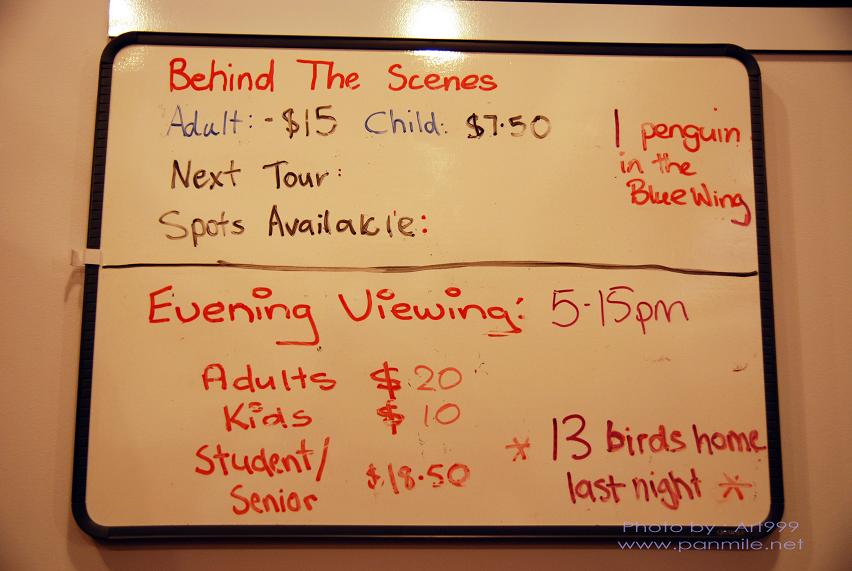 Behind The Scenes
Adult: - $15 Child: $7.50
1 penguin
in the
Blue Wing
Next Tour:
Spots Available:
Evening Viewing: 5-15pm
Adults $20
Kids $10
Student/
Senior $18.50
* 13 birds home
last night *
Photo by : Art999
www.panmile.net